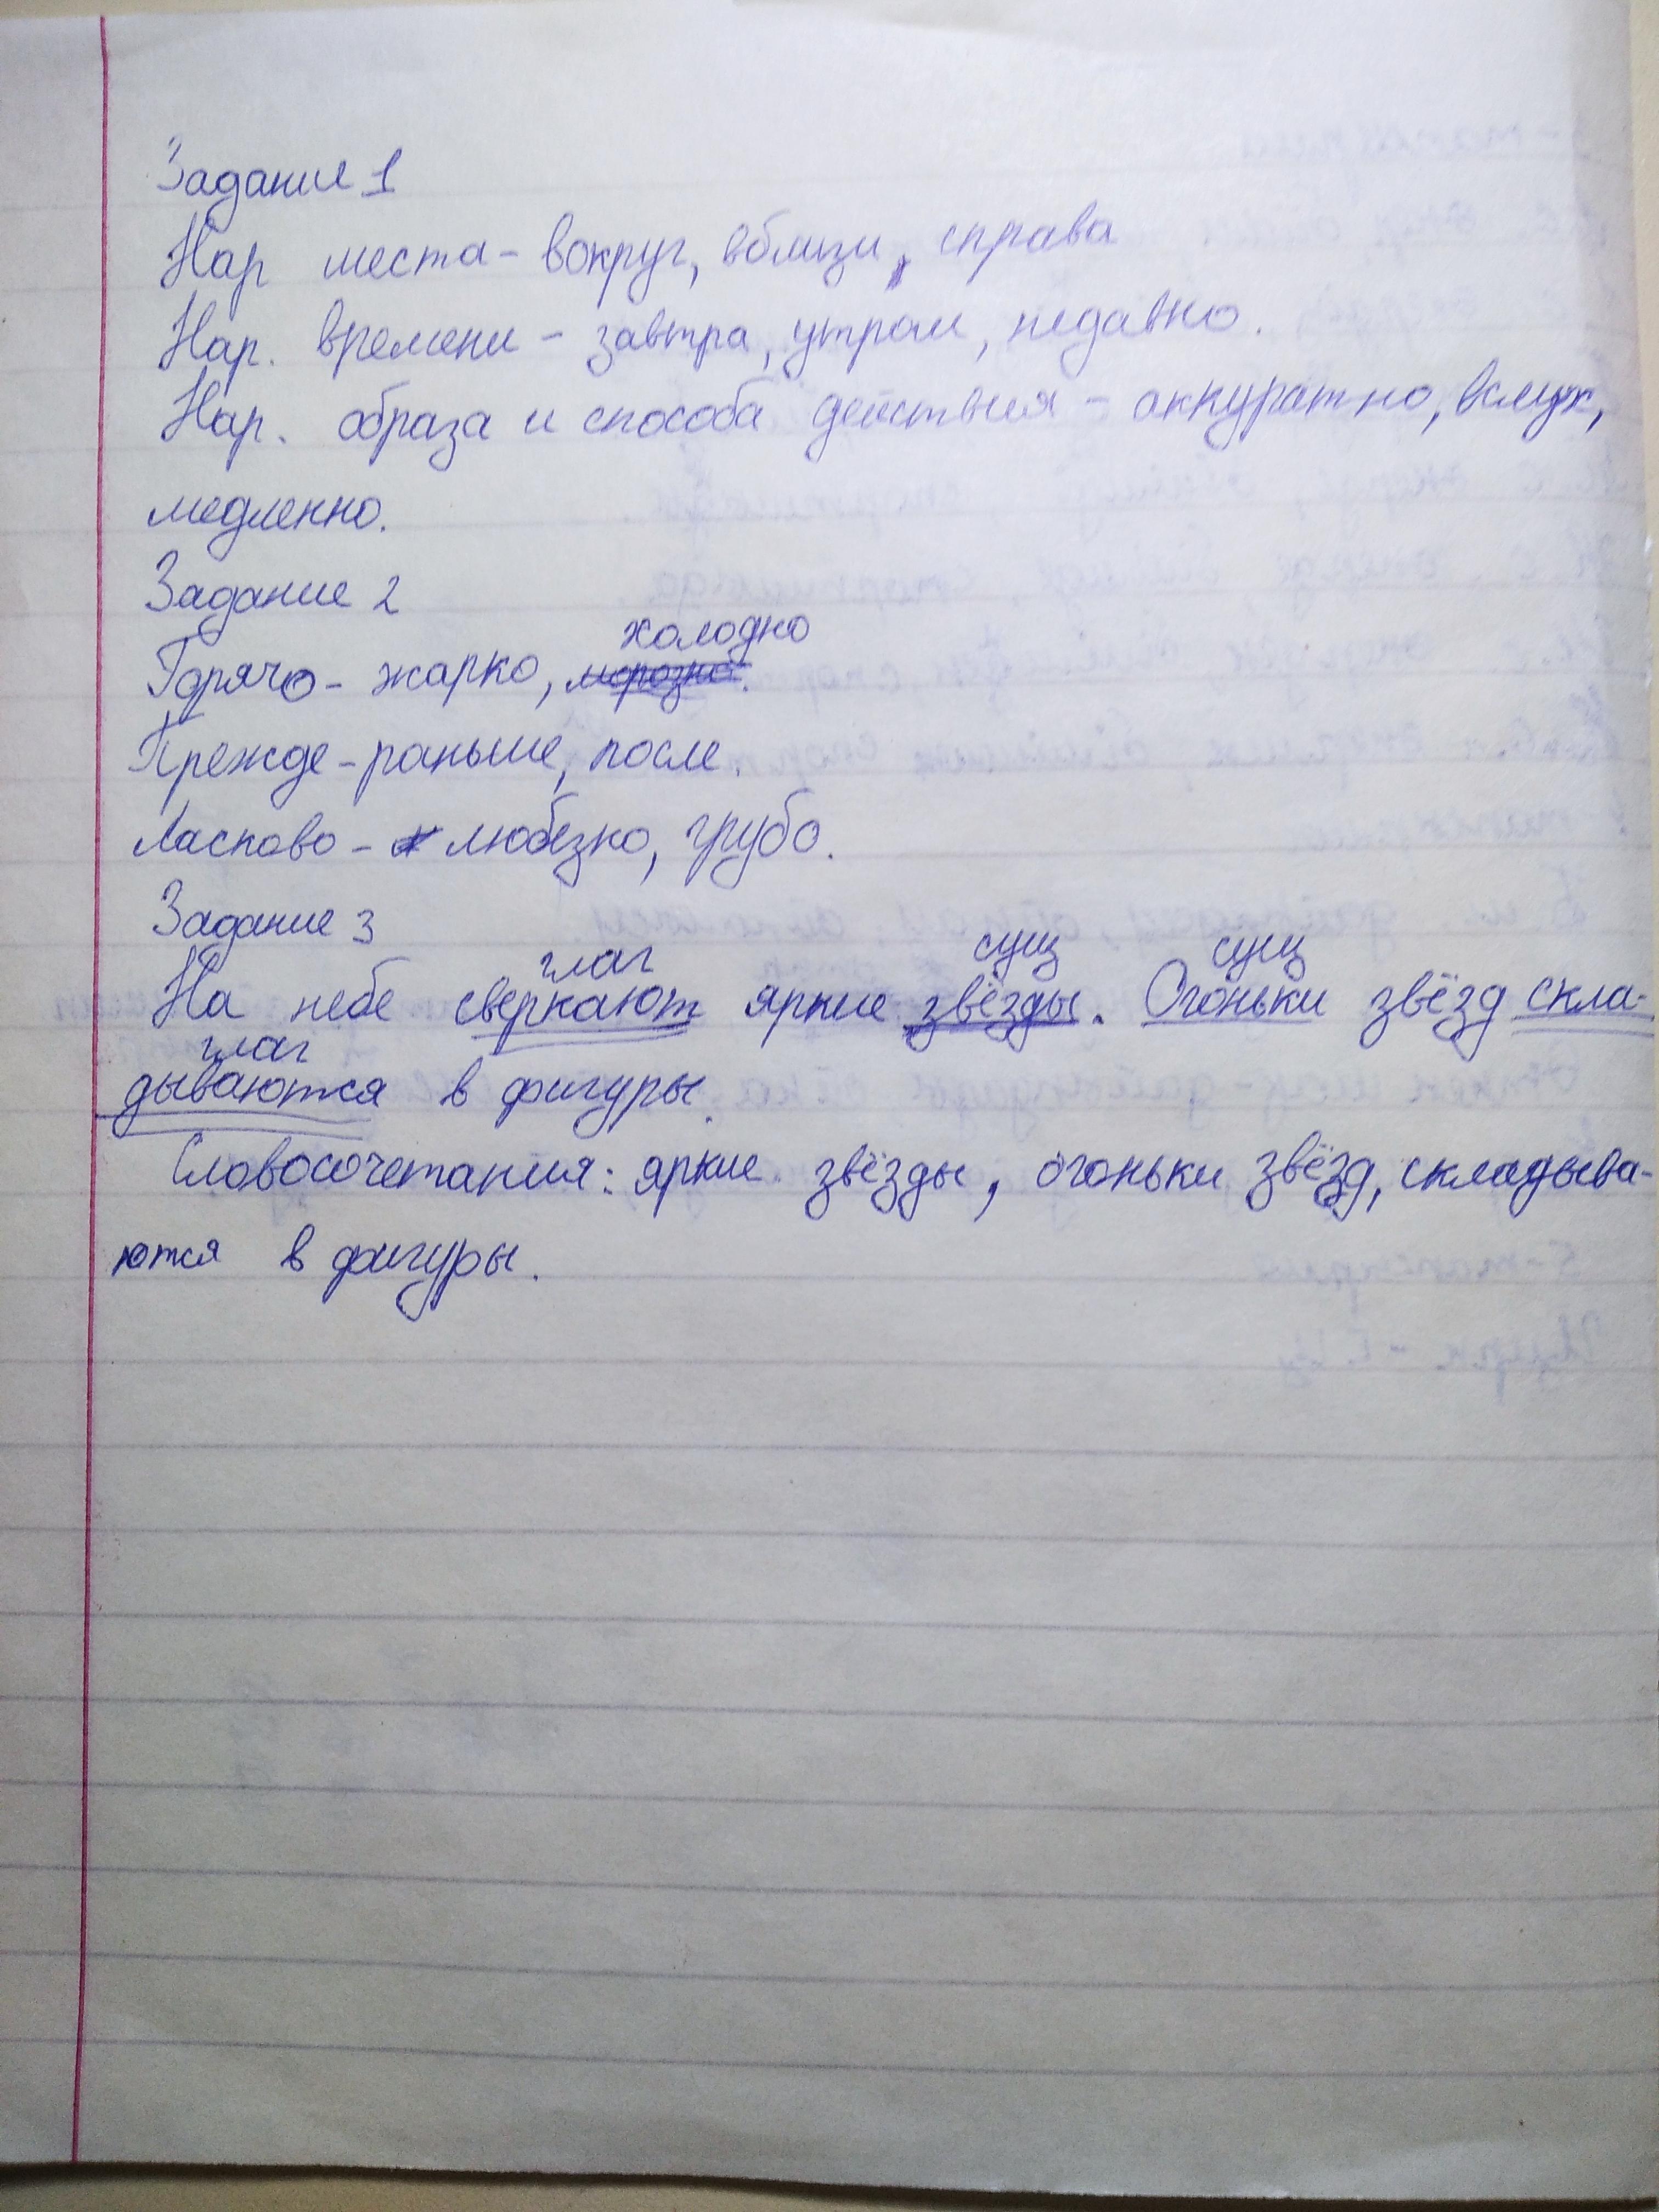 Задание 1
Нар места - вокруг, вблизи, справа
Нар. времени - завтра, утром, недавно.
Нар. образа и способа действия - аккуратно, вслух,
медленно.
Задание 2
холодно
Горячо - жарко, морозно.
Прежде - раньше, после.
Ласково - любезно, грубо.
Задание 3
глаг сущ сущ
На небе сверкают яркие звёзды. Огоньки звёзд скла-
глаг
дываются в фигуры.
Словосочетания: яркие звёзды, огоньки звёзд, складыва-
ются в фигуры.